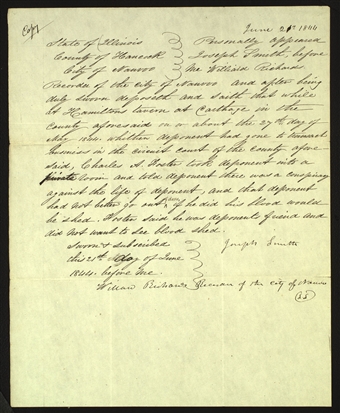 Copy
June 21st 1844
State of Illinois Personally appeared
County of Hancock Joseph Smith, before
City of Nauvoo Me Willard Richards
Recorder of the City of Nauvoo and after being
duly sworn deposeth and saith that while
at Hamiltons tavern at Carthage in the
County aforesaid on or about the 27th day of
May 1844. whither deponent had gone to transact
business in the circuit court of the county afore
said, Charles A. Foster took deponent into a
private room and told deponent there was a conspiracy
against the life of deponent, and that deponent
had not better go out of doors, if he did his blood would
be shed. Foster said he was deponents friend and
did not want to see blood shed.
Sworn & subscribed
this 21st day of June Joseph Smith
1844. before me.
Willard Richards Recorder of the City of Nauvoo